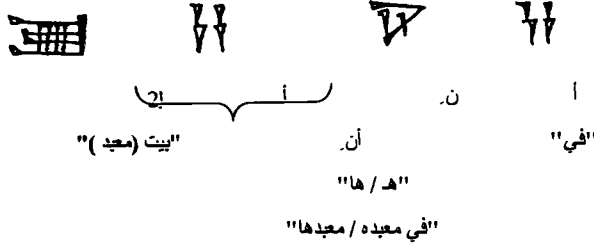 أ نِ أ
"في" أنِ "بيت (معبد )"
"هـ / ها"
"في معبده / معبدها"